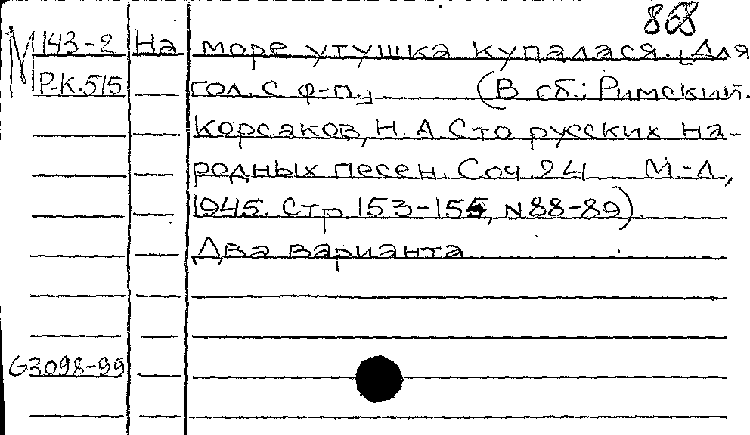 868
М 143-2 На море утушка купалася. Для
Р-К.515 гол. с ф-п., (В сб.: Римский-
Корсаков, Н. А. Сто русских на-
родных песен. Соч. 24 М.-Л.,
1945. Стр. 153-155, N 88-89).
Два варианта
G3098-99